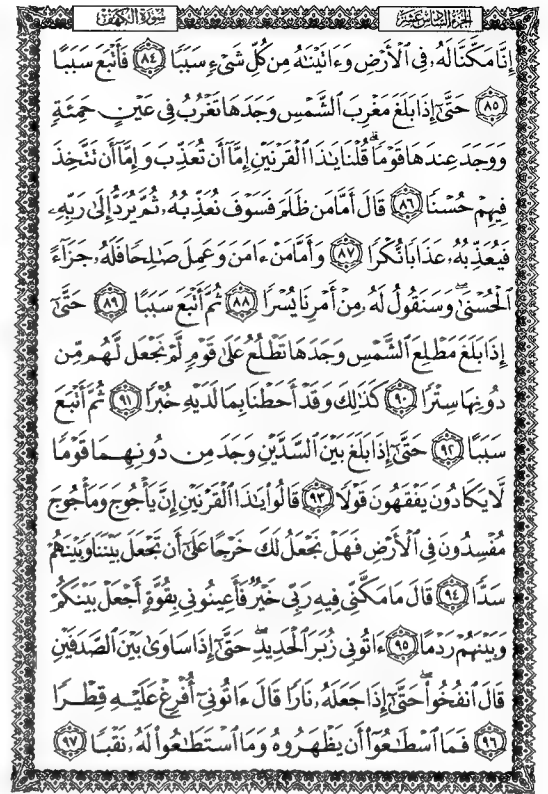 الجزء السادس عشر
سورة الكهف
إِنَّا مَكَّنَّا لَهُۥ فِى ٱلْأَرْضِ وَءَاتَيْنَٰهُ مِن كُلِّ شَىْءٍ سَبَبًا ٨٤ فَأَتْبَعَ سَبَبًا
٨٥ حَتَّىٰٓ إِذَا بَلَغَ مَغْرِبَ ٱلشَّمْسِ وَجَدَهَا تَغْرُبُ فِى عَيْنٍ حَمِئَةٍ
وَوَجَدَ عِندَهَا قَوْمًا ۗ قُلْنَا يَٰذَا ٱلْقَرْنَيْنِ إِمَّآ أَن تُعَذِّبَ وَإِمَّآ أَن تَتَّخِذَ
فِيهِمْ حُسْنًا ٨٦ قَالَ أَمَّا مَن ظَلَمَ فَسَوْفَ نُعَذِّبُهُۥ ثُمَّ يُرَدُّ إِلَىٰ رَبِّهِۦ
فَيُعَذِّبُهُۥ عَذَابًا نُّكْرًا ٨٧ وَأَمَّا مَنْ ءَامَنَ وَعَمِلَ صَٰلِحًا فَلَهُۥ جَزَآءً
ٱلْحُسْنَىٰ ۖ وَسَنَقُولُ لَهُۥ مِنْ أَمْرِنَا يُسْرًا ٨٨ ثُمَّ أَتْبَعَ سَبَبًا ٨٩ حَتَّىٰٓ
إِذَا بَلَغَ مَطْلِعَ ٱلشَّمْسِ وَجَدَهَا تَطْلُعُ عَلَىٰ قَوْمٍ لَّمْ نَجْعَل لَّهُم مِّن
دُونِهَا سِتْرًا ٩٠ كَذَٰلِكَ وَقَدْ أَحَطْنَا بِمَا لَدَيْهِ خُبْرًا ٩١ ثُمَّ أَتْبَعَ
سَبَبًا ٩٢ حَتَّىٰٓ إِذَا بَلَغَ بَيْنَ ٱلسَّدَّيْنِ وَجَدَ مِن دُونِهِمَا قَوْمًا
لَّا يَكَادُونَ يَفْقَهُونَ قَوْلًا ٩٣ قَالُوا۟ يَٰذَا ٱلْقَرْنَيْنِ إِنَّ يَأْجُوجَ وَمَأْجُوجَ
مُفْسِدُونَ فِى ٱلْأَرْضِ فَهَلْ نَجْعَلُ لَكَ خَرْجًا عَلَىٰٓ أَن تَجْعَلَ بَيْنَنَا وَبَيْنَهُمْ
سَدًّا ٩٤ قَالَ مَا مَكَّنِّى فِيهِ رَبِّى خَيْرٌ فَأَعِينُونِى بِقُوَّةٍ أَجْعَلْ بَيْنَكُمْ
وَبَيْنَهُمْ رَدْمًا ٩٥ ءَاتُونِى زُبَرَ ٱلْحَدِيدِ ۖ حَتَّىٰٓ إِذَا سَاوَىٰ بَيْنَ ٱلصَّدَفَيْنِ
قَالَ ٱنفُخُوا۟ ۖ حَتَّىٰٓ إِذَا جَعَلَهُۥ نَارًا قَالَ ءَاتُونِىٓ أُفْرِغْ عَلَيْهِ قِطْرًا
٩٦ فَمَا ٱسْطَٰعُوٓا۟ أَن يَظْهَرُوهُ وَمَا ٱسْتَطَٰعُوا۟ لَهُۥ نَقْبًا ٩٧